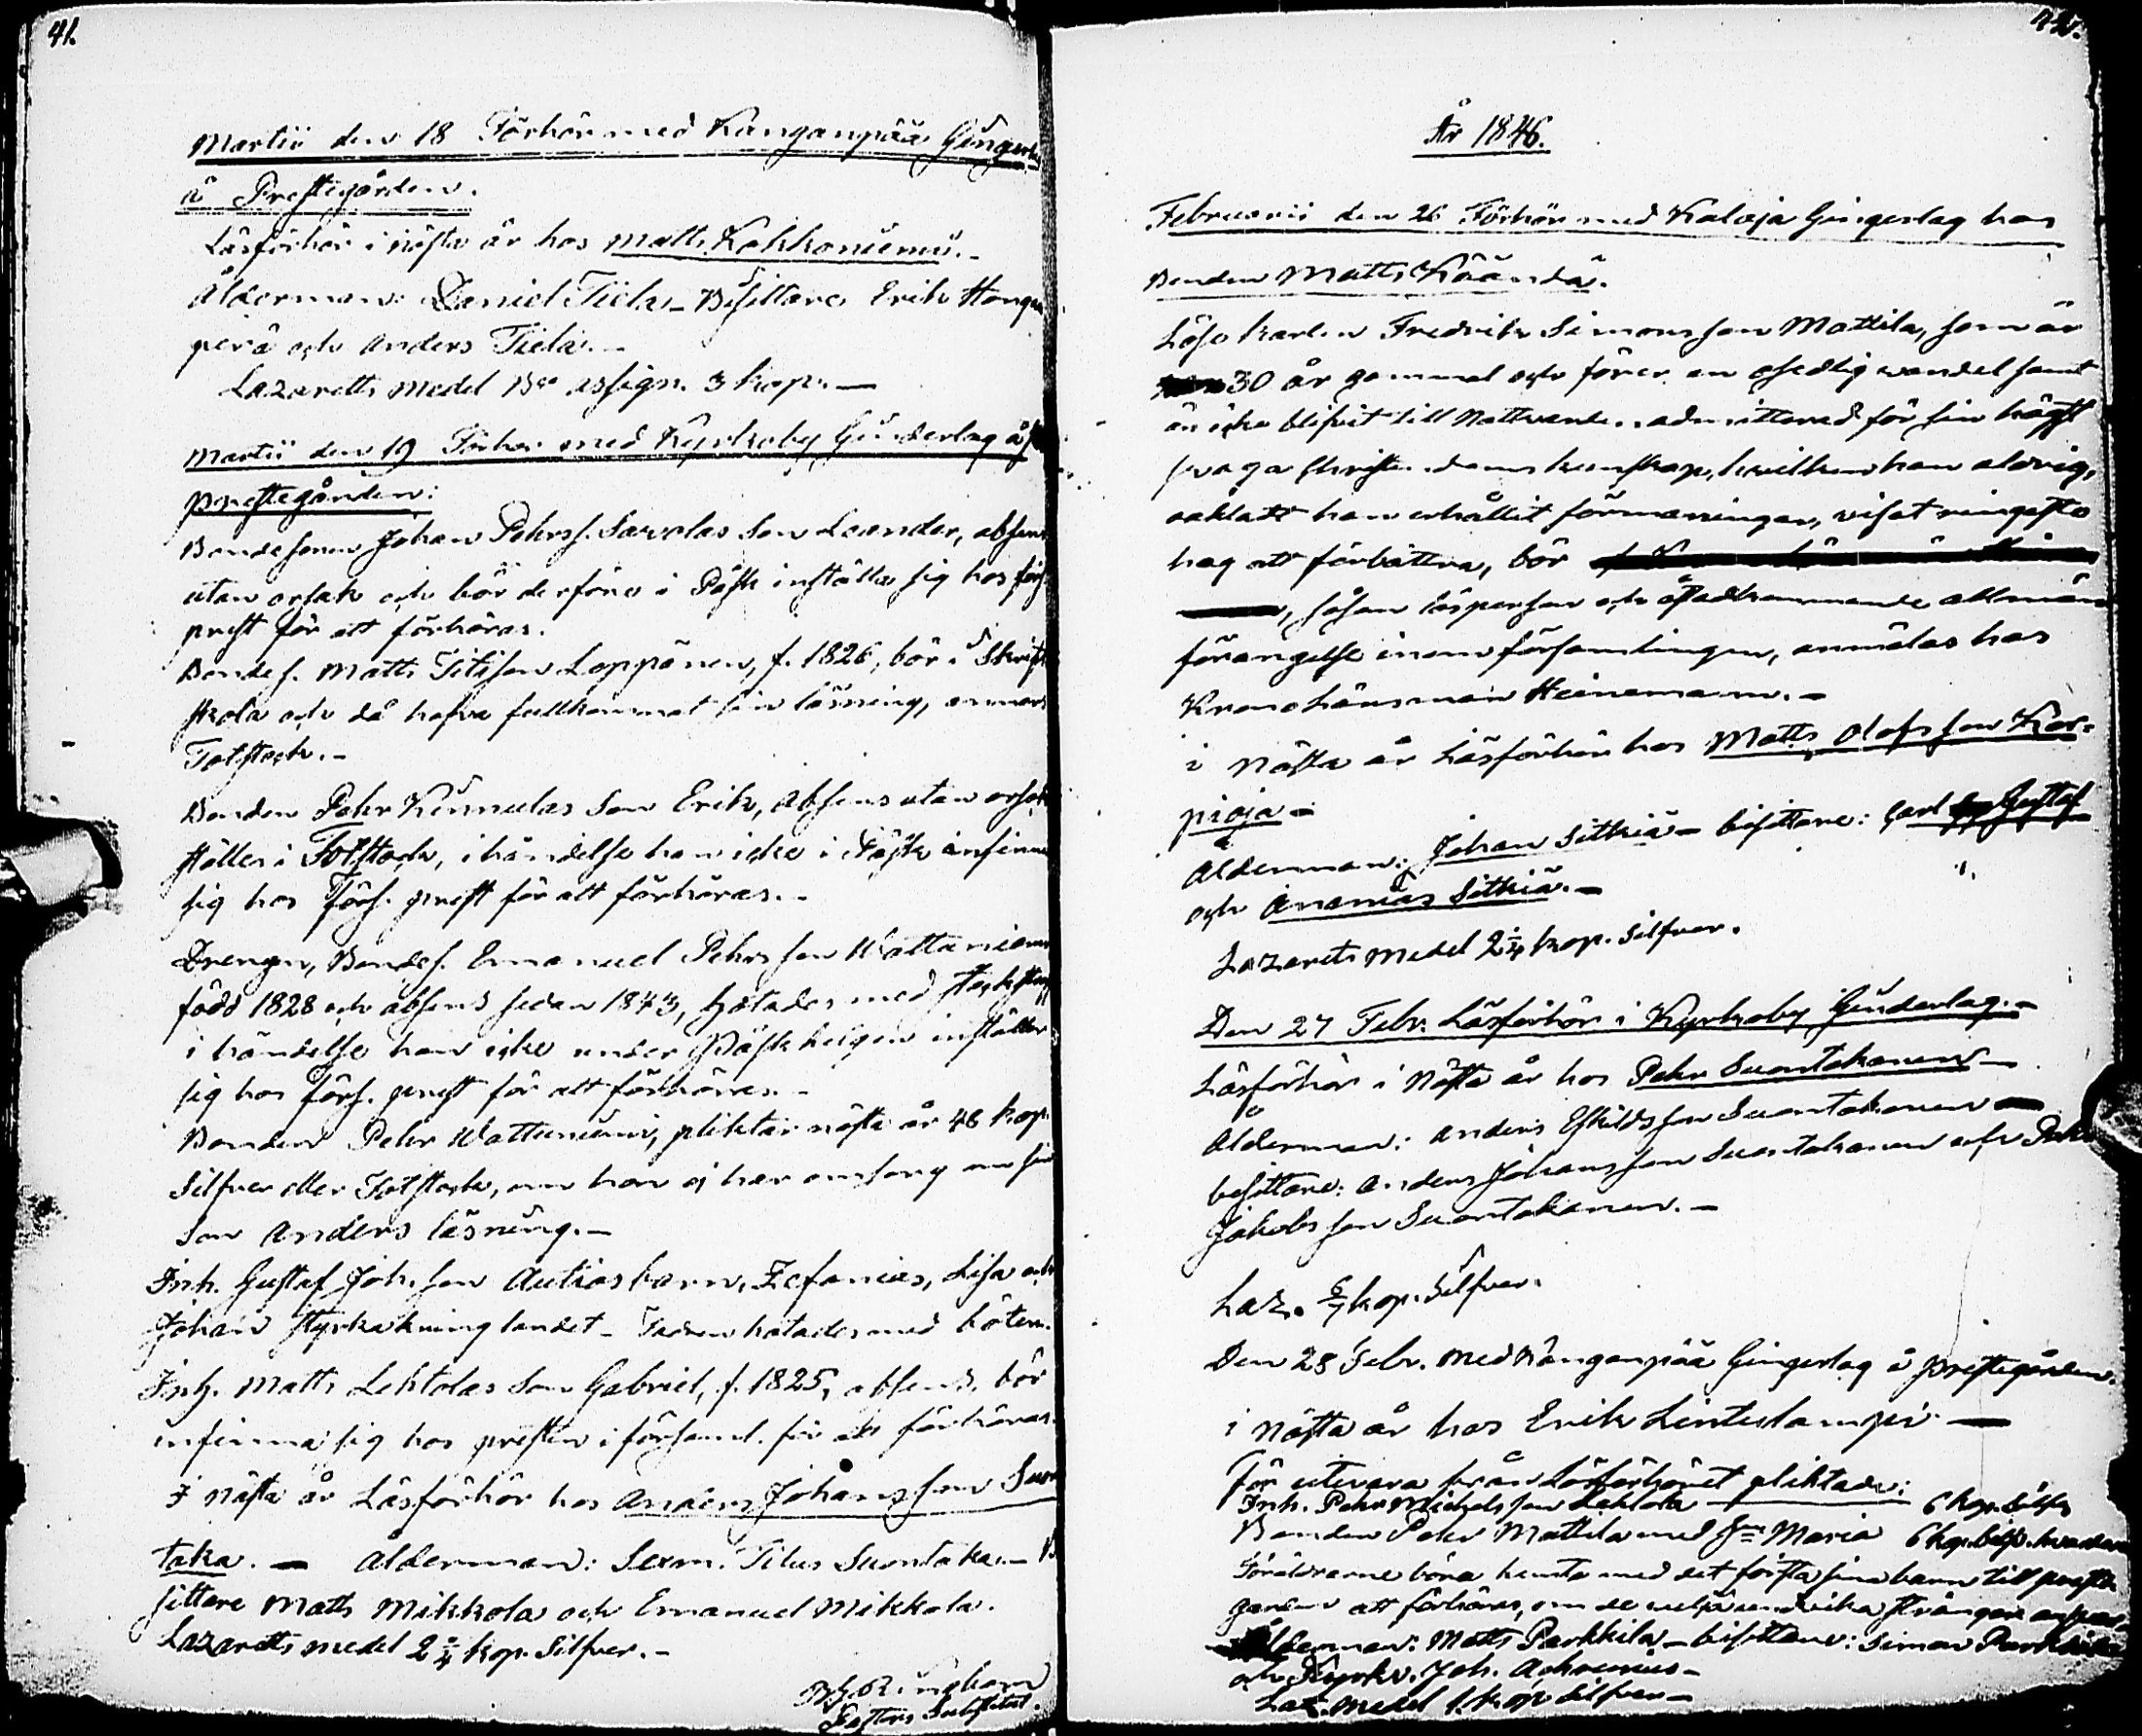 41.
Martii den 18 Förhör med Kanganpää Gingerlag
å Prestegården.
Läsförhör i nästa år hos Matts Kokkoniemi.-
Ålderman: Daniel Tiela - Bisittare Erik
perä och Anders Tiela.-
Lazaretts medel B:co assign. 3 kop.-
Martii den 19 Förhör med Kyrkoby Ginderlag å
prestegården:
Bondesonen Johan Pehrs. Sarvolas Son Leander, absens
utan orsak och bör derföre i Påsk inställa sig hos förs.
prest för att förhöras.
Bondes. Matts Titisson Loppönen, f. 1826, bör i Skrift
skola och då hafva fullkommat sin läsning, annars
Fotstock.-
Bonden Pehr Kinnulas Son Erik, absens utan orsak
ställes i Fotstock, i händelse han icke i Påsk infinner
sig hos Förs. prest för att förhöras.-
Drengen, Bondes. Emanuel Pehrsson Wattuniemi
född 1828 och absens sedan 1843, hotades med
i händelse han icke under Påskhelgen inställer
sig hos förs. prest för att förhöras.-
Bonden Pehr Wattuniemi, pliktar nästa år 48 kop.
Silfver eller Fotstock, om han ej har omsorg om sin
Son Anders läsning.-
Inh. Gustaf Joh.son Autios barn, Zefanias, Lisa och
Johan stryka kring landet - Fadren hotades med böter.
Inh. Matts Lehtolas Son Gabriel, f. 1825, absens, bör
infinna sig hos presten i församl. för att förhöras.
I nästa år Läsförhör hos Anders Johansson Suon
taka. - Ålderman: Sexm. Titus Suontaka - Bi
sittare Matts Mikkola och Emanuel Mikkola.
Lazaretts medel 2 1/4 kop. Silfver.-
Ringbom
Pastors Substitut.
42.
År 1846.
Februarii den 26 Förhör med Kalaja Gingerlag hos
Bonden Matts Käändä.
Löse karlen Fredrik Simonsson Mattila, som är
30 år gammal och förer en osedlig vandel samt
än icke blifvit till Nattvarden admitterad för sin högst
svaga Christendoms kunskap, hvilken han aldrig,
oaktadt han erhållit förmaningar, visat ringaste
hag att förbättra, bör
, såsom lösperson och åstadkommande allmän
förargelse inom församlingen, anmälas hos
Kronolänsman Heinemann.-
i nästa år Läsförhör hos Matts Olofsson Kar-
pioja -
Ålderman: Johan Sitkiä - bisittare: Carl Gustaf
och Ananias Sitkiä.-
Lazarets medel 2 1/4 kop. Silfver.
Den 27 Febr. Läsförhör i Kyrkoby Ginderlag.-
Läsförhör i nästa år hos Pehr Suontakanen -
Ålderman: Anders Eskildsson Suontakanen -
bisittare: Anders Johansson Suontakanen och Pehr
Jakobsson Suontakanen.-
Laz. 6/7 kop. Silfver.
Den 28 Febr. med Kanganpää Gingerlag å prestegården.
i nästa år hos Erik Lintulampi -
För utevara från Läsförhöret pliktade:
Inh. Pehr Michelsson Lehtola - 6 kop. Silfv.
Bonden Pehr Mattila med H:u Maria 6 kop. Silfv. hvardera
Föräldrarne böra hemta med det första sina barn till preste
gården att förhöras, om de vilja undvika strängare ansvar,
Ålderman: Matts Parkkila - bisittare: Simon Parkkila
och Kyrkv. Joh. Achrenius -
Laz. medel 1 kop Silfver -